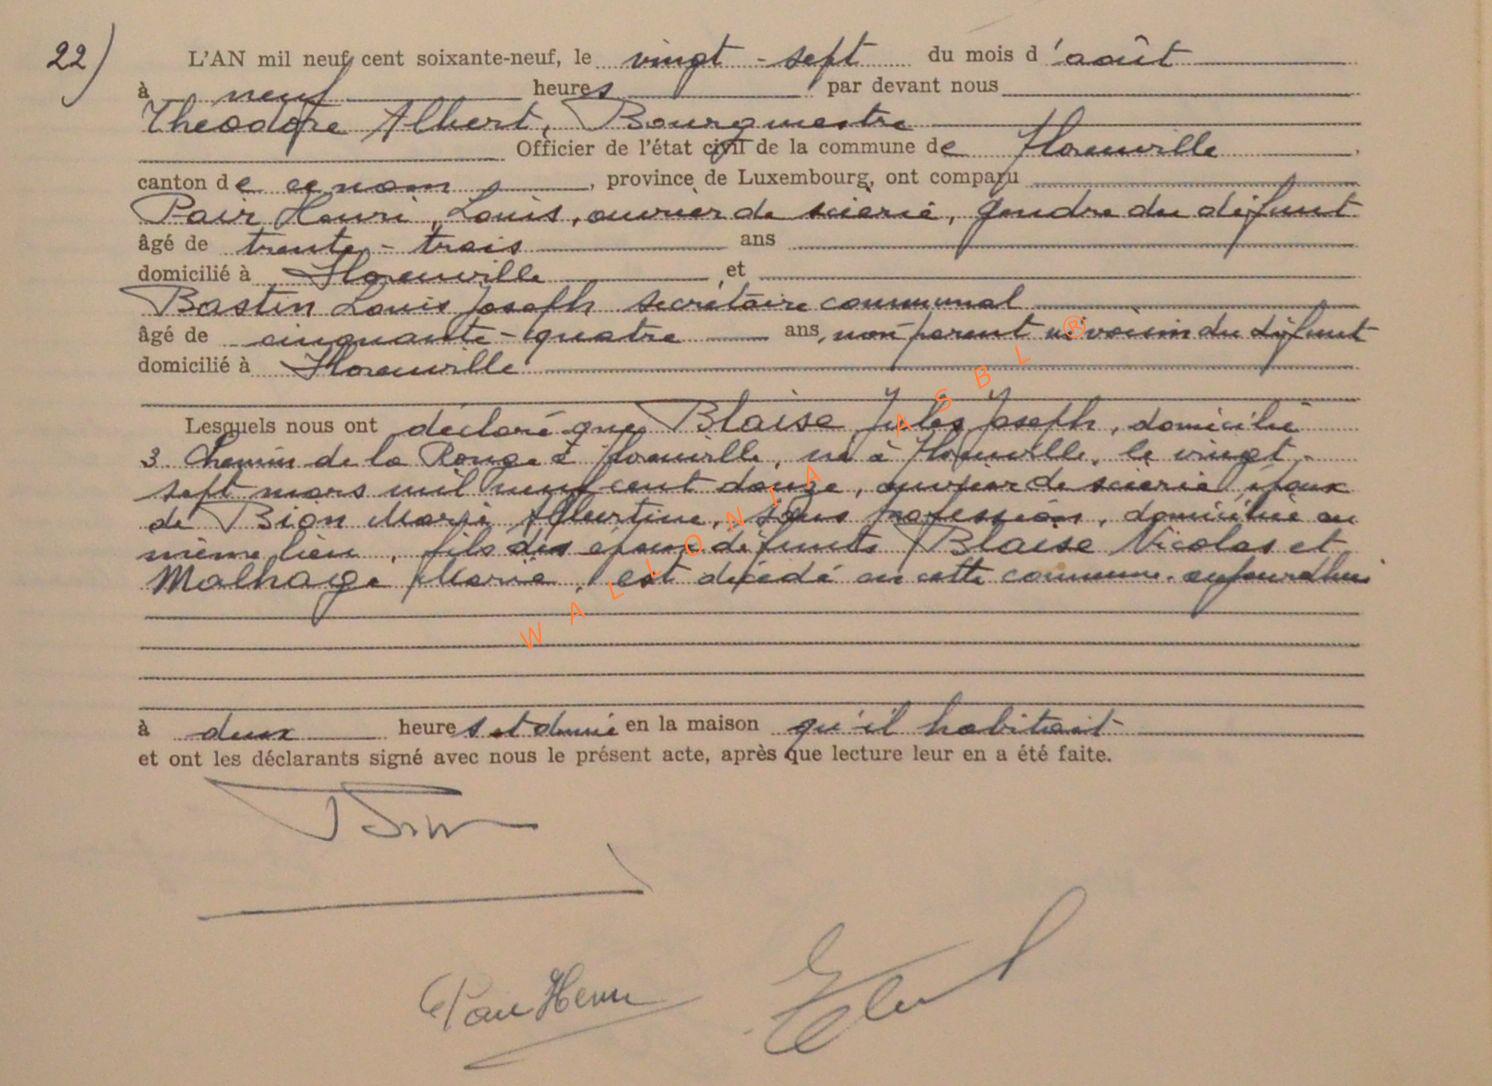 22) L'AN mil neuf cent soixante-neuf, le vingt-sept du mois d'août
à neuf heures par devant nous
Théodore Albert, Bourgmestre
Officier de l'état civil de la commune de Florenville
canton de ce nom, province de Luxembourg, ont comparu
Pair Henri, Louis, ouvrier de scierie, gendre du défunt
âgé de trente-trois ans
domicilié à Florenville, et
Bastin Louis Joseph secrétaire communal
âgé de cinquante-quatre ans, non parent ni voisin du défunt
domicilié à Florenville
Lesquels nous ont déclaré que Blaise Jules Joseph, domicilié
3 Chemin de la Ronge à Florenville, né à Florenville, le vingt-
sept mars mil neuf cent douze, ouvrier de scierie, époux
de Bion Marie Albertine, sans profession, domiciliée au
même lieu, fils des époux défunts Blaise Nicolas et
Malhage Marie, est décédé en cette commune aujourd'hui
à deux heures et demie en la maison qu'il habitait
et ont les déclarants signé avec nous le présent acte, après que lecture leur en a été faite.
Pair Henri
WALLONIA ASBL ®